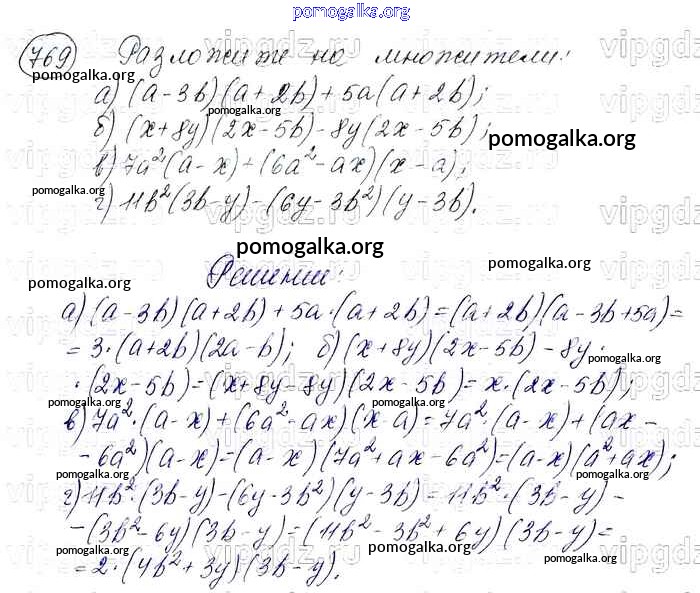 pomogalka.org
769 Разложите на множители:
pomogalka.org
а) (a-3b)(a+2b)+5a(a+2b);
pomogalka.org
б) (x+8y)(2x-5b)-8y(2x-5b);
pomogalka.org
в) 7a²(a-x)+(6a²-ax)(x-a);
pomogalka.org
г) 11b²(3b-y)-(6y-3b²)(y-3b).
pomogalka.org
Решение:
pomogalka.org
pomogalka.org
а) (a-3b)(a+2b)+5a·(a+2b)=(a+2b)(a-3b+5a)=
=3·(a+2b)(2a-b); б) (x+8y)(2x-5b)-8y·
pomogalka.org
·(2x-5b)=(x+8y-8y)(2x-5b)=x·(2x-5b);
pomogalka.org
pomogalka.org
pomogalka.org
в) 7a²·(a-x)+(6a²-ax)(x-a)=7a²·(a-x)+(ax-
-6a²)(a-x)=(a-x)(7a²+ax-6a²)=(a-x)(a²+ax);
pomogalka.org
pomogalka.org
pomogalka.org
г) 11b²·(3b-y)-(6y-3b²)(y-3b)=11b²·(3b-y)-
-(3b²-6y)(3b-y)=(11b²-3b²+6y)(3b-y)=
pomogalka.org
pomogalka.org
pomogalka.org
=2·(4b²+3y)(3b-y).